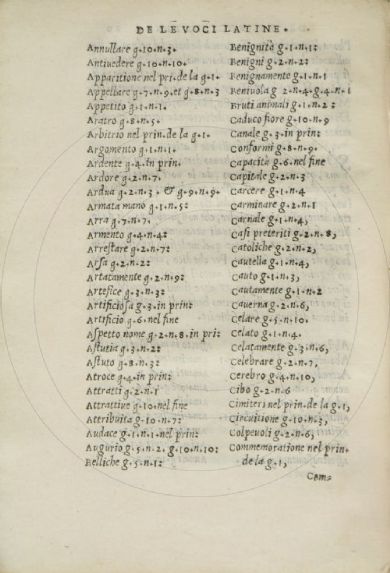 DE LE VOCI LATINE.
Annullare g.10.n.3.
Antiuedere g.10.n.10.
Apparitione nel pri.de la g.1.
Appellare g.7.n.9.et g.8.n.3
Appetito g.1.n.1.
Aratro g.8.n.5.
Arbitrio nel prin.de la g.1.
Argomento g.1.n.1.
Ardente g.4.in prin.
Ardore g.2.n.7.
Ardua g.2.n.3. & g.9.n.9.
Armata mano g.1.n.5:
Arra g.7.n.7.
Armento g.4.n.4:
Arrestare g.2.n.7:
Arsa g.2.n.2:
Artatamente g.2.n.9:
Artefice g.3.n.3:
Artificiosa g.3.in prin:
Artificio g.6.nel fine
Aspetto nome g.2.n.8.in pri:
Astutia g.3.n.2:
Astuto g.8.n.3:
Atroce g.4.in prin:
Attratti g.2.n.1
Attrattiue g.10.nel fine
Attribuita g.10.n.7:
Audace g.1.n.1.nel prin:
Augurio g.5.n.2.g.10.n.10:
Belliche g.5.n.1:
Benignità g.1.n.1:
Benigni g.2.n.2:
Benignamente g.1.n.1
Beniuola g.2.n.4.g.4.n.1
Bruti animali g.1.n.2:
Caduco fiore g.10.n.9
Canale g.3.in prin:
Conformi g.8.n.9.
Capacità g.6.nel fine
Capitale g.2.n.3
Carcere g.1.n.4
Carminare g.2.n.1
Carnale g.1.n.4,
Casi preteriti g.2.n.8,
Catoliche g.2.n.2,
Cautella g.1.n.4,
Cauto g.1.n.3,
Cautamente g.1.n.2
Cauerna g.2.n.6,
Celare g.5.n.10.
Celato g.1.n.4.
Celatamente g.3.n.6,
Celebrare g.2.n.7,
Cerebro g.4.n.10,
Cibo g.2.n.6
Cimiteri nel prin.de la g.1,
Circuitione g.10.n.3,
Colpeuoli g.2.n.6,
Commemoratione nel prin.
de la g.1,
Com.